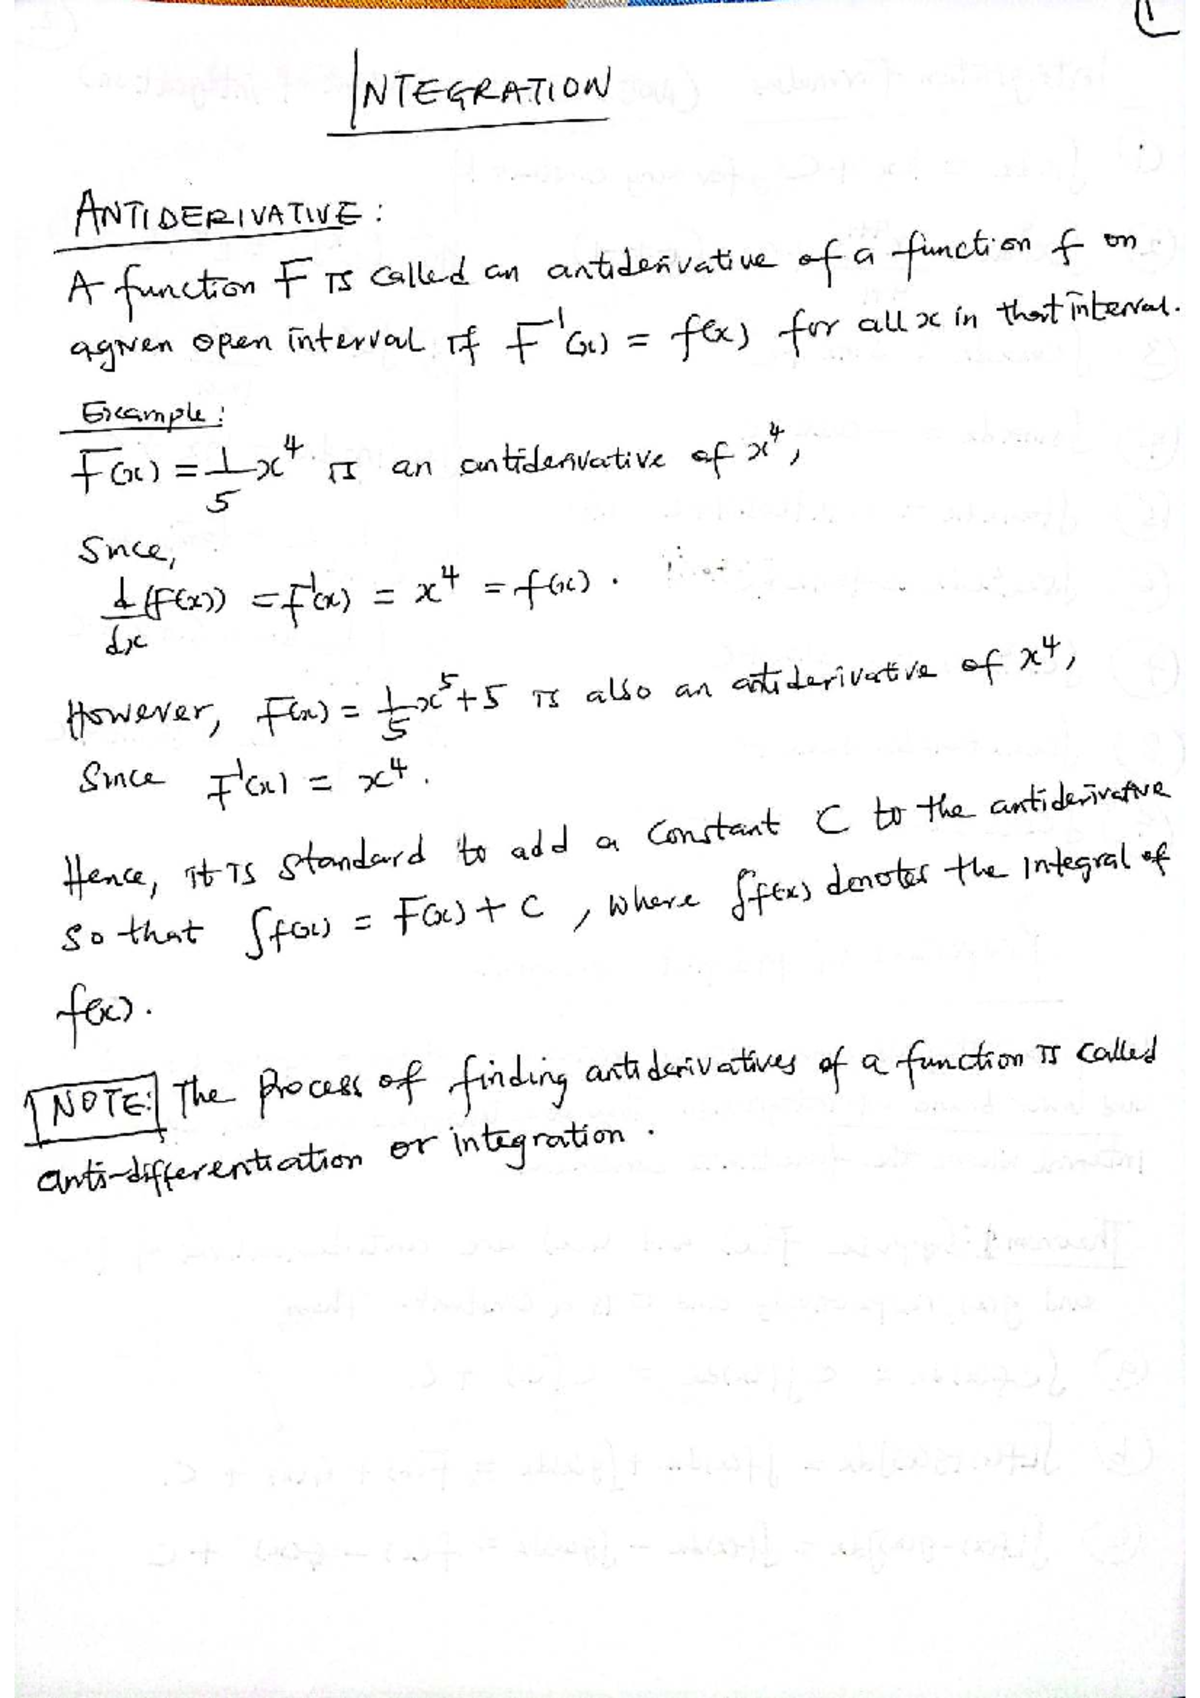 1
INTEGRATION
ANTIDERIVATIVE:
A function F is called an antiderivative of a function f on
a given open interval if F'(x) = f(x) for all x in that interval.
Example:
F(x) = 1/5 x^4 is an antiderivative of x^4,
Since,
d/dx (F(x)) = F'(x) = x^4 = f(x).
However, F(x) = 1/5 x^5 + 5 is also an antiderivative of x^4,
Since F'(x) = x^4.
Hence, it is standard to add a constant C to the antiderivative
so that ∫f(x) = F(x) + C, where ∫f(x) denotes the integral of
f(x).
NOTE: The process of finding antiderivatives of a function is called
anti-differentiation or integration.